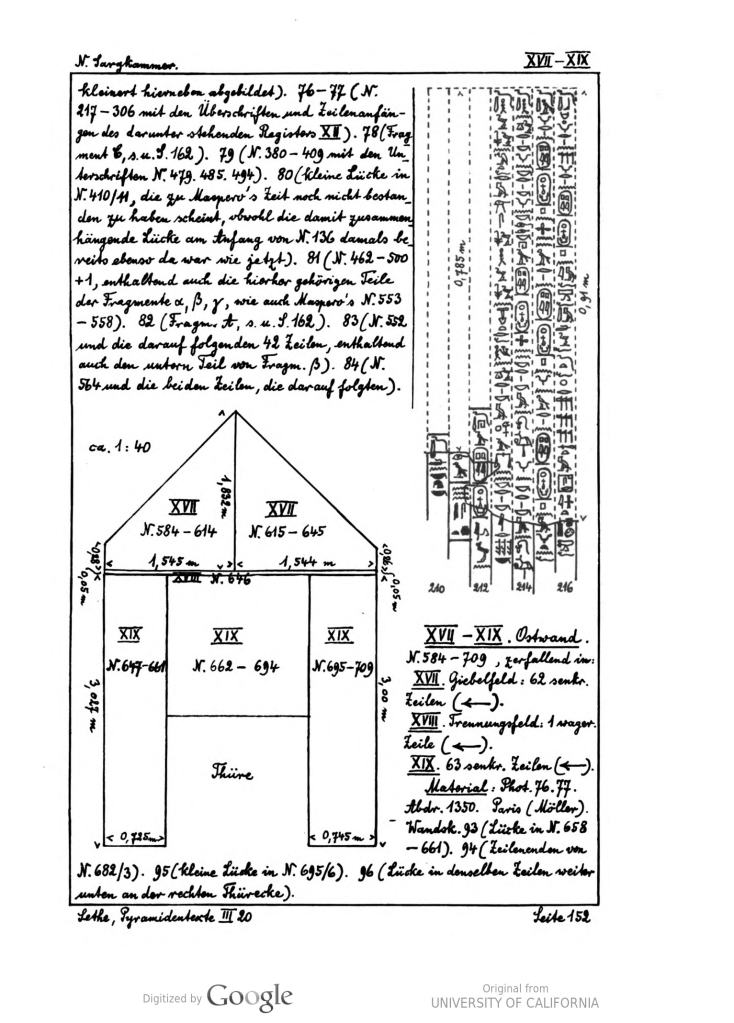 N. Sargkammer.
XVII – XIX
kleinert hierneben abgebildet). 76–77 (N.
217–306 mit den Überschriften und Zeilenanfän-
gen des darunter stehenden Registers XII). 78 (Frag
ment C, s.u. S. 162). 79 (N. 380–409 mit den Un-
terschriften N. 479. 485. 494). 80 (kleine Lücke in
N. 410/11, die zu Maspero's Zeit noch nicht bestan-
den zu haben scheint, obwohl die damit zusammen
hängende Lücke am Anfang von N. 136 damals be-
reits ebenso da war wie jetzt). 81 (N. 462–500
+1, enthaltend auch die hierher gehörigen Teile
der Fragmente α, β, γ, wie auch Maspero's N. 553
– 558). 82 (Fragm. A, s.u. S. 162). 83 (N. 552
und die darauf folgenden 42 Zeilen, enthaltend
auch den untern Teil von Fragm. β). 84 (N.
564 und die beiden Zeilen, die darauf folgten).
0,785 m
0,91 m
210
212
214
216
ca. 1:40
1,832 m
XVII
N. 584–614
XVII
N. 615–645
1,545 m
1,544 m
0,05 m
0,05 m
XVIII N. 646
XIX
N. 647–661
XIX
N. 662 – 694
XIX
N. 695–709
3,027 m
3,00 m
Thüre
0,725 m
0,745 m
XVII – XIX. Ostwand.
N. 584–709, zerfallend in:
XVII. Giebelfeld: 62 senkr.
Zeilen (←).
XVIII. Trennungsfeld: 1 wager.
Zeile (←).
XIX. 63 senkr. Zeilen (←).
Material: Phot. 76. 77.
Abdr. 1350. Paris (Möller).
Wandsk. 93 (Lücke in N. 658
– 661). 94 (Zeilenenden von
N. 682/3). 95 (kleine Lücke in N. 695/6). 96 (Lücke in denselben Zeilen weiter
unten an der rechten Thürecke).
Sethe, Pyramidentexte III 20
Seite 152
Digitized by Google
Original from
UNIVERSITY OF CALIFORNIA